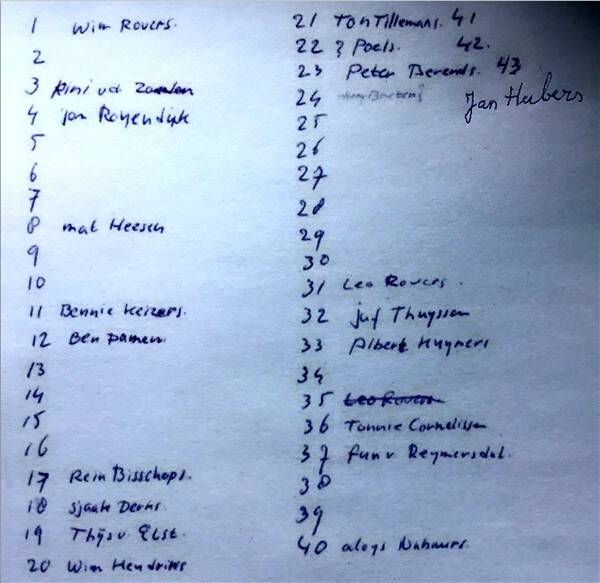 1 Wim Rovers.
2
3 Rini vd
4 jan Royendijk
5
6
7
8 mat Heesen
9
10
11 Bennie Keizers.
12 Ben Damen
13
14
15
16
17 Rein Bisschops.
18 Sjaak Derks
19 Thijs v Elst.
20 Wim Hendriks
21 Ton Tillemans. 41
22 ? Poels. 42.
23 Peter Berends. 43
24
Jan Hubers
25
26
27
28
29
30
31 Leo Rovers.
32 juf Thuyssen
33 Albert Huymers
34
35 Leo Rovers
36 Tonnie Cornelissen
37 Reymersdal.
38
39
40 aloys Nahuurs.